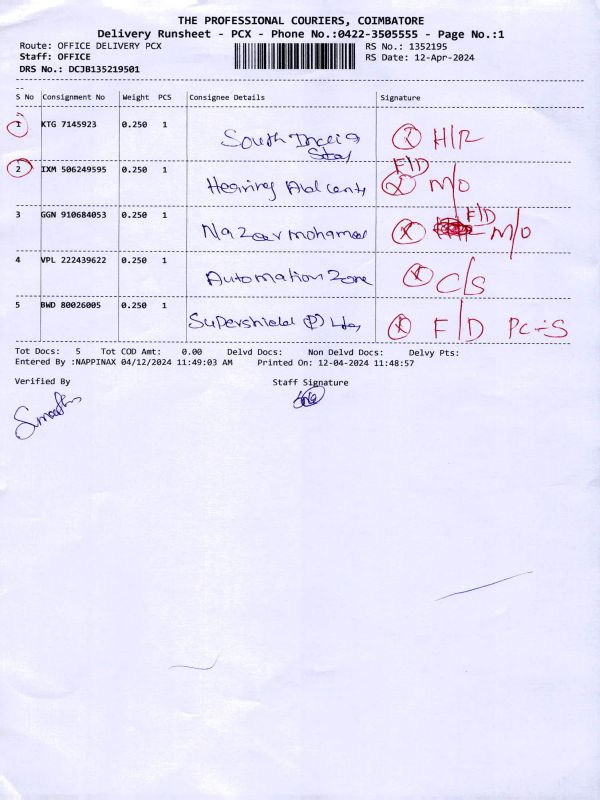 THE PROFESSIONAL COURIERS, COIMBATORE
Delivery Runsheet - PCX - Phone No.:0422-3505555 - Page No.:1
Route: OFFICE DELIVERY PCX RS No.: 1352195
Staff: OFFICE RS Date: 12-Apr-2024
DRS No.: DCJB135219501
S No Consignment No Weight PCS Consignee Details Signature
1 KTG 7145923 0.250 1
South India Stay H/R
2 IXM 506249595 0.250 1 F/D
Hearing Aid Cent M/O
3 GGN 910684053 0.250 1 F/D
Nazeer mohamed M/O
4 VPL 222439622 0.250 1
Automation Zone C/S
5 BWD 80026005 0.250 1
Supershield (P) Ltd, F/D PC-S
Tot Docs: 5 Tot COD Amt: 0.00 Delvd Docs: Non Delvd Docs: Delvy Pts:
Entered By :NAPPINAX 04/12/2024 11:49:03 AM Printed On: 12-04-2024 11:48:57
Verified By Staff Signature